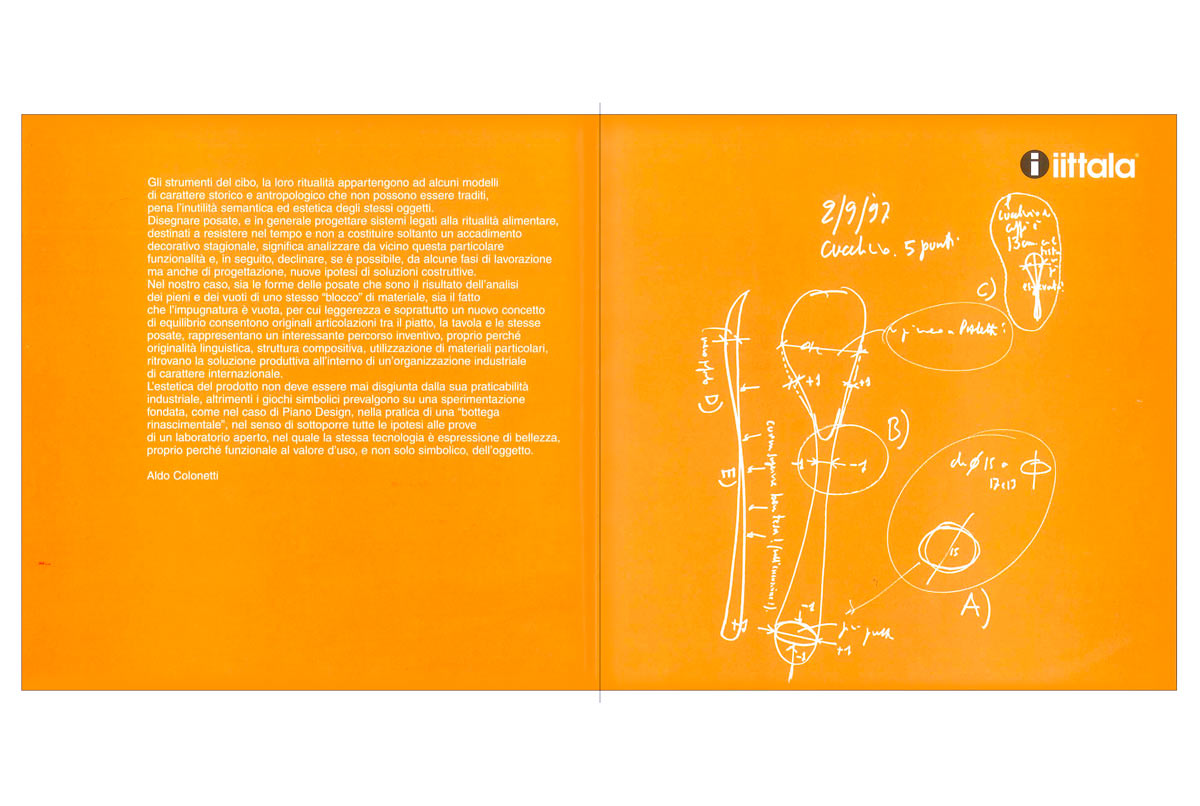 Gli strumenti del cibo, la loro ritualità appartengono ad alcuni modelli
di carattere storico e antropologico che non possono essere traditi,
pena l'inutilità semantica ed estetica degli stessi oggetti.
Disegnare posate, e in generale progettare sistemi legati alla ritualità alimentare,
destinati a resistere nel tempo e non a costituire soltanto un accadimento
decorativo stagionale, significa analizzare da vicino questa particolare
funzionalità e, in seguito, declinare, se è possibile, da alcune fasi di lavorazione
ma anche di progettazione, nuove ipotesi di soluzioni costruttive.
Nel nostro caso, sia le forme delle posate che sono il risultato dell'analisi
dei pieni e dei vuoti di uno stesso "blocco" di materiale, sia il fatto
che l'impugnatura è vuota, per cui leggerezza e soprattutto un nuovo concetto
di equilibrio consentono originali articolazioni tra il piatto, la tavola e le stesse
posate, rappresentano un interessante percorso inventivo, proprio perché
originalità linguistica, struttura compositiva, utilizzazione di materiali particolari,
ritrovano la soluzione produttiva all'interno di un'organizzazione industriale
di carattere internazionale.
L'estetica del prodotto non deve essere mai disgiunta dalla sua praticabilità
industriale, altrimenti i giochi simbolici prevalgono su una sperimentazione
fondata, come nel caso di Piano Design, nella pratica di una "bottega
rinascimentale", nel senso di sottoporre tutte le ipotesi alle prove
di un laboratorio aperto, nel quale la stessa tecnologia è espressione di bellezza,
proprio perché funzionale al valore d'uso, e non solo simbolico, dell'oggetto.
Aldo Colonetti
i iittala
2/9/97
cucchiaio. 5 punti.
13 cm
C)
D)
+1
+1
B)
E)
-1
-1
da Ø 15 a
17x13
15
A)
-1
+1
+1
-1